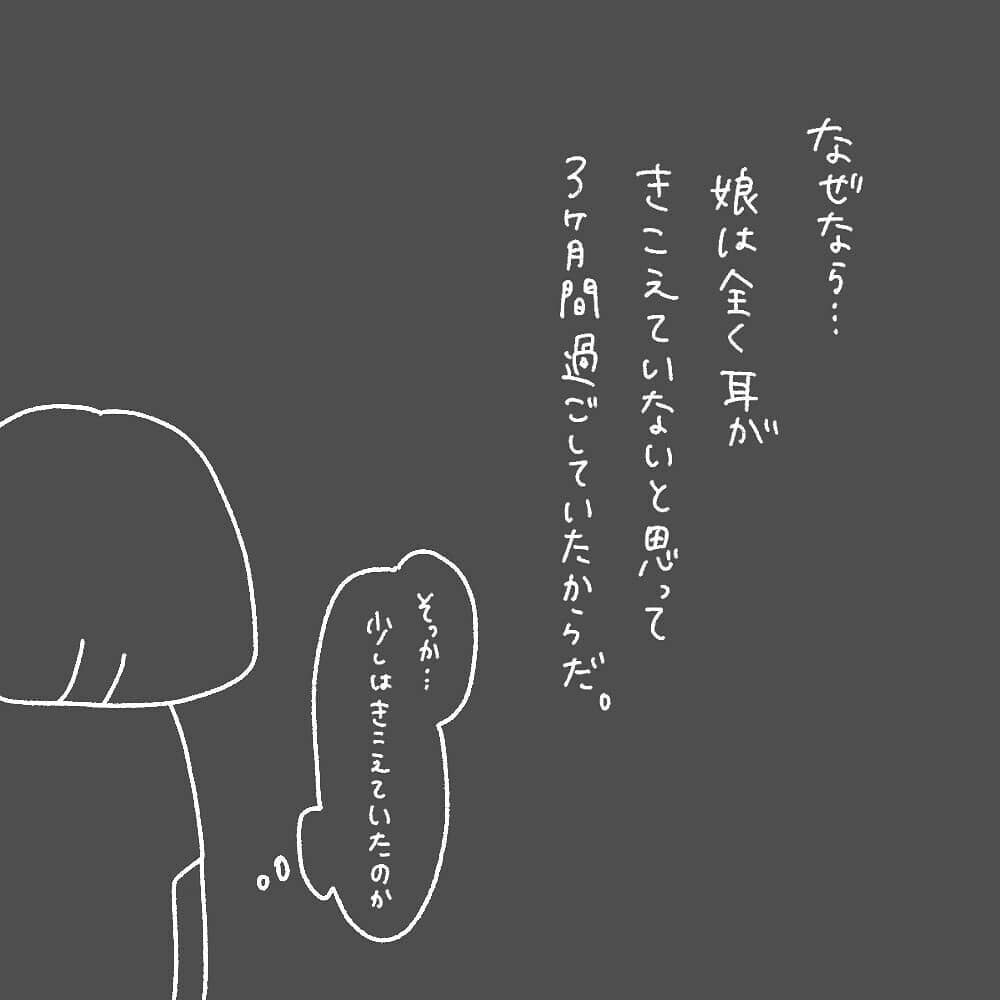 なぜなら…
娘は全く耳が
きこえていないと思って
3ヶ月間過ごしていたからだ。
そっか…
少しはきこえていたのか